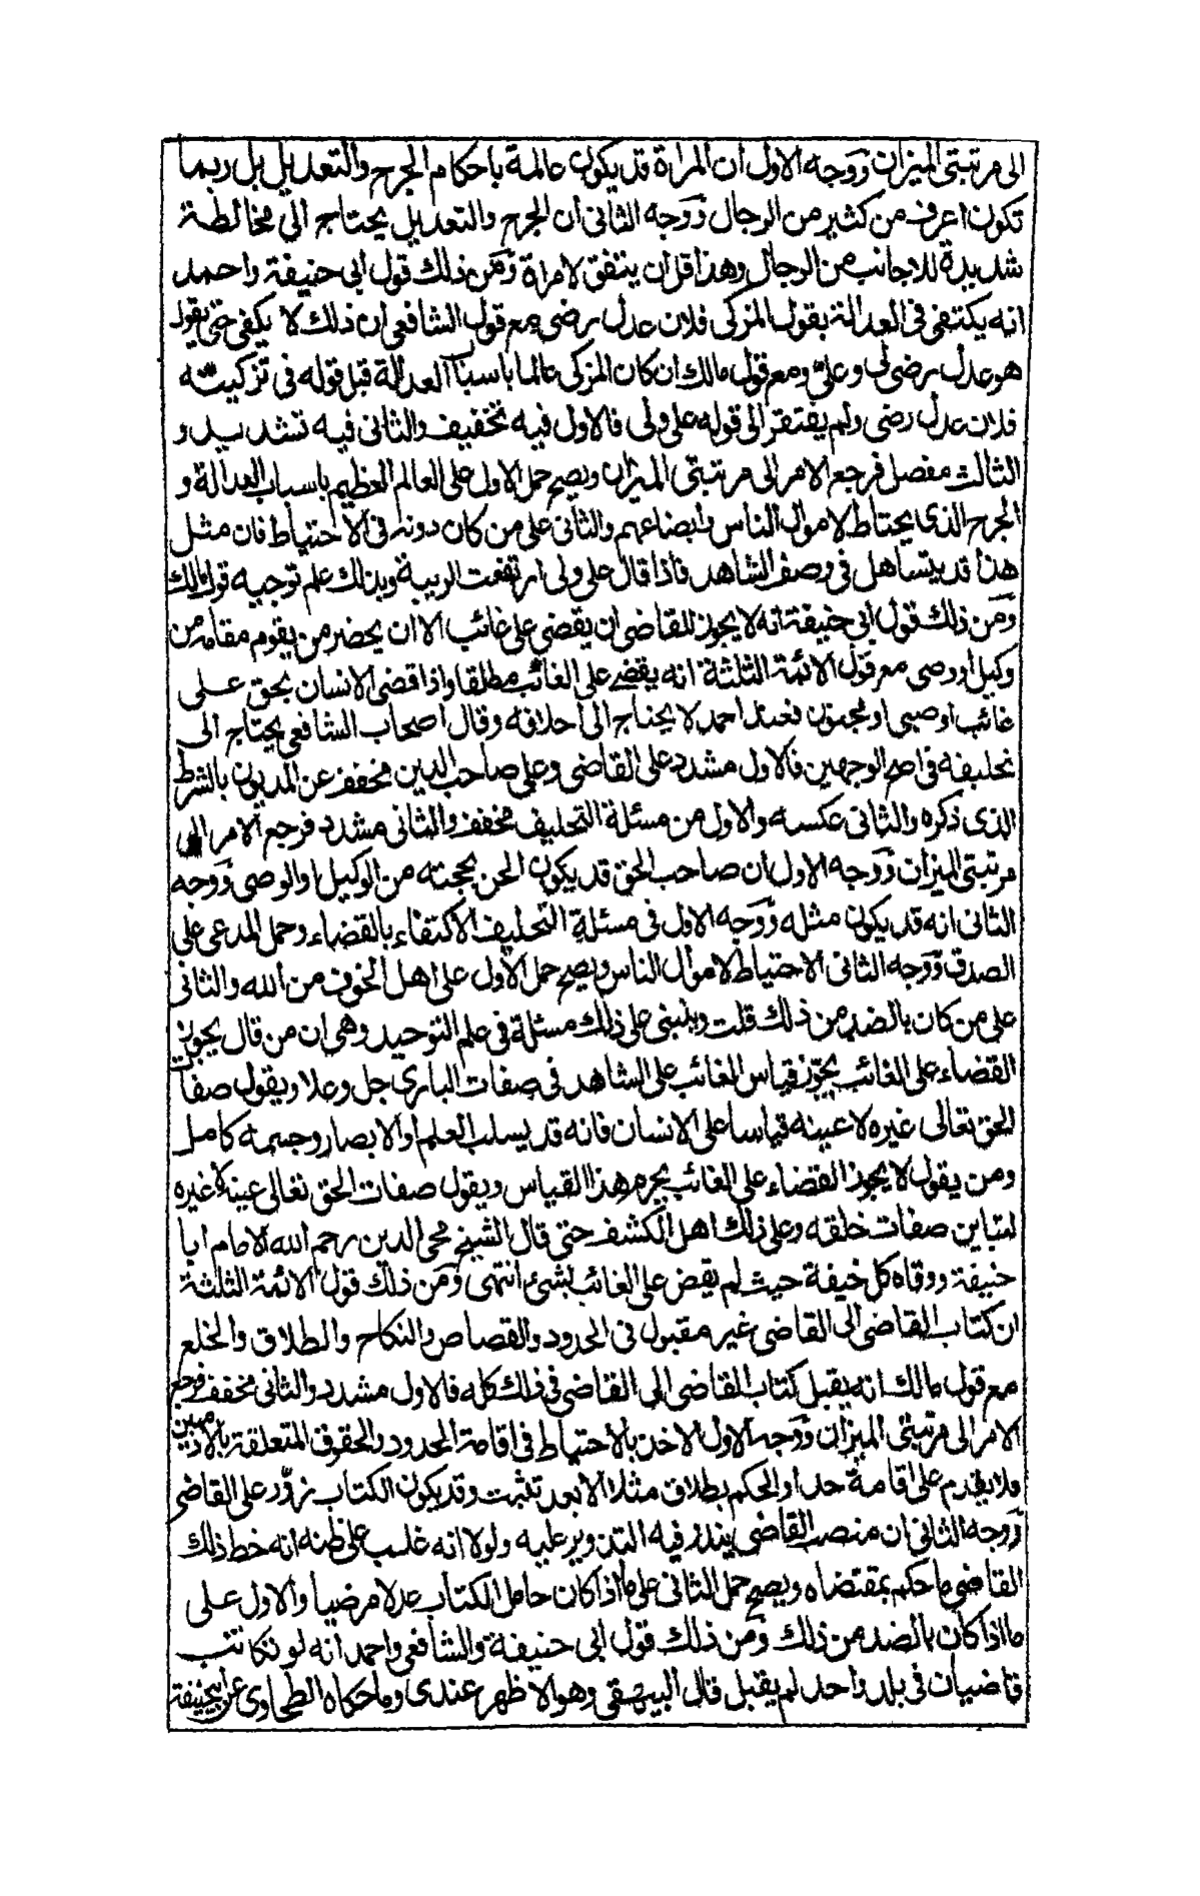 الى مرتبتى الميزان ووجه الاول ان المراة قد يكون عالمة باحكام الجرح والتعديل بل ربما
تكون اعرف من كثير من الرجال ووجه الثانى ان الجرح والتعديل يحتاج الى مخالطة
شديدة للاجانب من الرجال وهذا قل ان يتفق لامراة ومن ذلك قول ابى حنيفة واحمد
انه يكتفى فى العدالة بقول المزكى فلان عدل رضى مع قول الشافعى ان ذلك لا يكفى حتى يقول
هو عدل رضى لى وعلىّ ومع قول مالك ان كان المزكى عالما باسباب العدالة قبل قوله فى تزكيته
فلان عدل رضى ولم يفتقر الى قوله على ولى فالاول فيه تخفيف والثانى فيه تشديد و
الثالث مفصل فرجع الامر الى مرتبتى الميزان ويصح حمل الاول على العالم العظيم باسباب العدالة و
الجرح الذى يحتاط لاموال الناس وابضاعهم والثانى على من كان دونه فى الاحتياط فان مثل
هذا قد يتساهل فى وصف الشاهد فاذا قال على ولى ارتفعت الريبة وبذلك علم توجيه قول مالك
ومن ذلك قول ابى حنيفة انه لا يجوز للقاضى ان يقضى على غائب الا ان يحضر من يقوم مقامه من
وكيل او وصى مع قول الائمة الثلثة انه يقضے على الغائب مطلقا واذا قضى الانسان بحق على
غائب او صبى او مجنون فعند احمد لا يحتاج الى احلافه وقال اصحاب الشافعى يحتاج الى
تحليفه فى اصح الوجهين فالاول مشدد على القاضى وعلى صاحب الدين مخفف عن المديون بالشرط
الذى ذكره والثانى عكسه والاول من مسئلة التحليف مخفف والثانى مشدد فرجع الامر الى
مرتبتى الميزان ووجه الاول ان صاحب الحق قد يكون الحن بحجته من الوكيل او الوصى ووجه
الثانى انه قد يكون مثله ووجه الاول فى مسئلة التحليف الاكتفاء بالقضاء وحمل المدعى على
الصدق ووجه الثانى الاحتياط لاموال الناس ويصح حمل الاول على اهل الخوف من الله والثانى
على من كان بالضد من ذلك قلت وينبنى على ذلك مسئلة فى علم التوحيد وهى ان من قال يجوز
القضاء على الغائب يجوّز قياس الغائب على الشاهد فى صفات البارى جل وعلا ويقول صفات
الحق تعالى غيره لا عينه قياسا على الانسان فانه قد يسلب العلم او الابصار وجسمه كامل
ومن يقول لا يجوز القضاء على الغائب يحرم هذا القياس ويقول صفات الحق تعالى عينه لا غيره
لتباين صفات خلقه وعلى ذلك اهل الكشف حتى قال الشيخ محى الدين رحم الله الامام ابا
حنيفة ووقاه كل خيفة حيث لم يقض على الغائب بشئ انتهى ومن ذلك قول الائمة الثلثة
ان كتاب القاضى الى القاضى غير مقبول فى الحدود والقصاص والنكاح والطلاق والخلع
مع قول مالك انه يقبل كتاب القاضى الى القاضى فى ذلك كله فالاول مشدد والثانى مخفف فرجع
الامر الى مرتبتى الميزان ووجه الاول الاخذ بالاحتياط فى اقامة الحدود والحقوق المتعلقة بالادميين
فلا يقدم على اقامة حد او الحكم بطلاق مثلا الا بعد تثبت وقد يكون الكتاب زوّر على القاضى
ووجه الثانى ان منصب القاضى يندر فيه التزوير عليه ولولا انه غلب على ظنه انه خط ذلك
القاضى ما حكم بمقتضاه ويصح حمل الثانى على ما اذا كان حامل الكتاب عدلا مرضيا والاول على
ما اذا كان بالضد من ذلك ومن ذلك قول ابى حنيفة والشافعى واحمد انه لو تكاتب
قاضيان فى بلد واحد لم يقبل قال البيهقى وهو الاظهر عندى وما حكاه الطحاوى عن ابى حنيفة